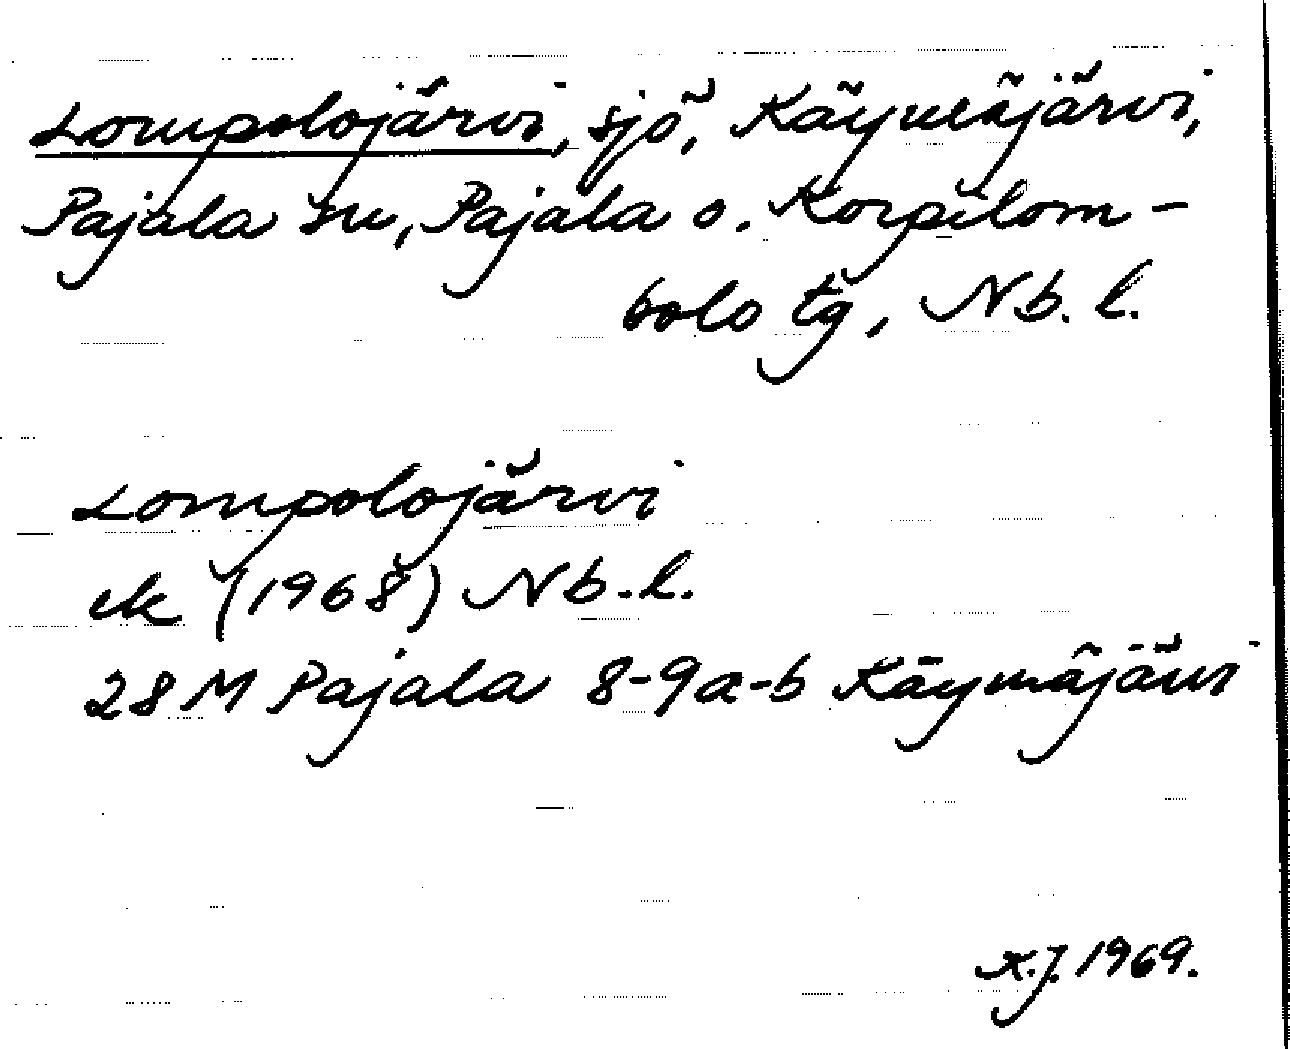 Lompolojärvi, sjö, Käymäjärvi,
Pajala sn, Pajala o. Korpilom-
bolo tg, Nb. l.
Lompolojärvi
ek (1968) Nb. l.
28 M Pajala 8-9a-b Käymäjärvi
K.J. 1969.